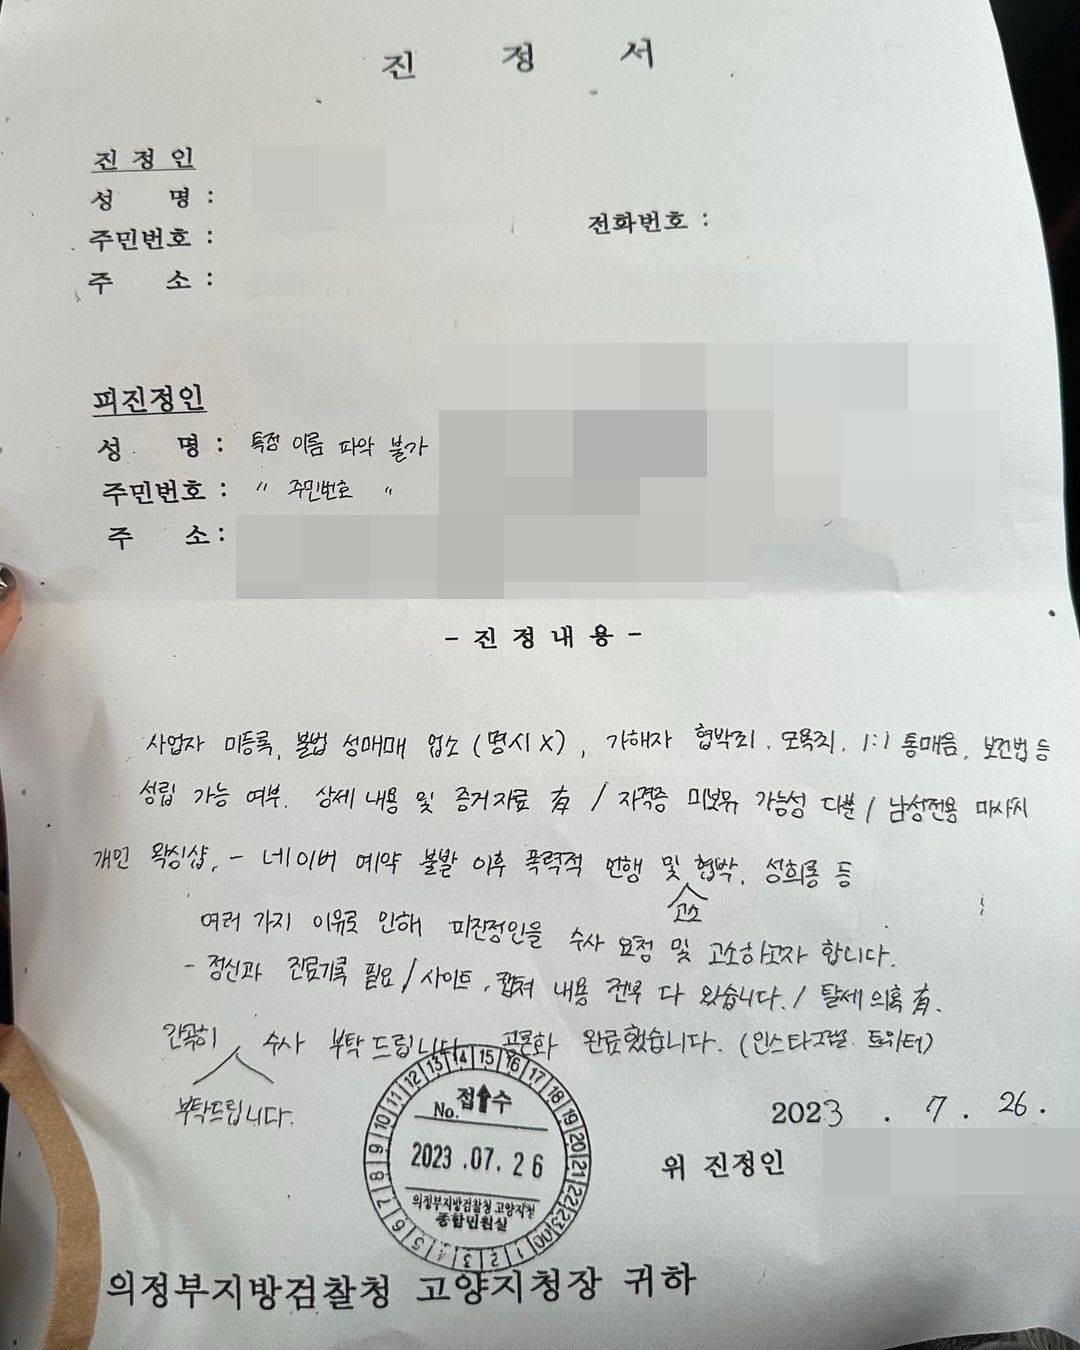 진 정 서
진 정 인
성 명 :
전화번호 :
주민번호 :
주 소 :
피진정인
성 명 : 특정 이름 파악 불가
주민번호 : 〃 주민번호 〃
주 소 :
- 진 정 내 용 -
사업자 미등록, 불법 성매매 업소 (명시 X), 가해자 협박죄. 모욕죄. 1:1 통매음, 보건법 등
성립 가능 여부. 상세 내용 및 증거자료 有 / 자격증 미보유 가능성 다분 / 남성전용 마사지
개인 왁싱샵, - 네이버 예약 불발 이후 폭력적 언행 및 협박, 성희롱 등
고소
여러 가지 이유로 인해 피진정인을 수사 요청 및 고소하고자 합니다.
- 정신과 진료기록 필요 / 사이트, 캡쳐 내용 전부 다 있습니다. / 탈세 의혹 有.
간곡히 수사 부탁드립니다 공론화 완료했습니다. (인스타그램. 트위터)
부탁드립니다.
2023 . 7 . 26 .
위 진정인
00 1 2 3 4 5 6 7 8 9 10 11 12 13 14 15 16 17 18 19 20 21 22 23
접수
No.
2023 .07. 26
의정부지방검찰청 고양지청
종합민원실
의정부지방검찰청 고양지청장 귀하